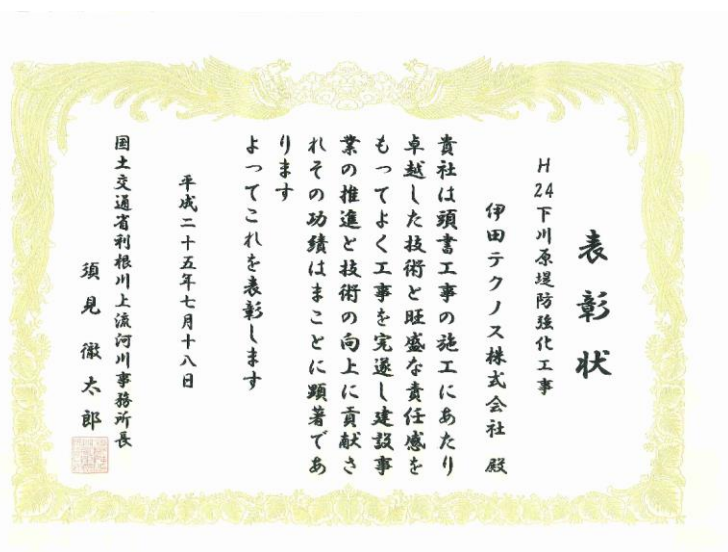 表彰状
H24下川原堤防強化工事
伊田テクノス株式会社 殿
貴社は頭書工事の施工にあたり
卓越した技術と旺盛な責任感を
もってよく工事を完遂し建設事
業の推進と技術の向上に貢献さ
れその功績はまことに顕著であ
ります
よってこれを表彰します
平成二十五年七月十八日
国土交通省利根川上流河川事務所長
須見徹太郎